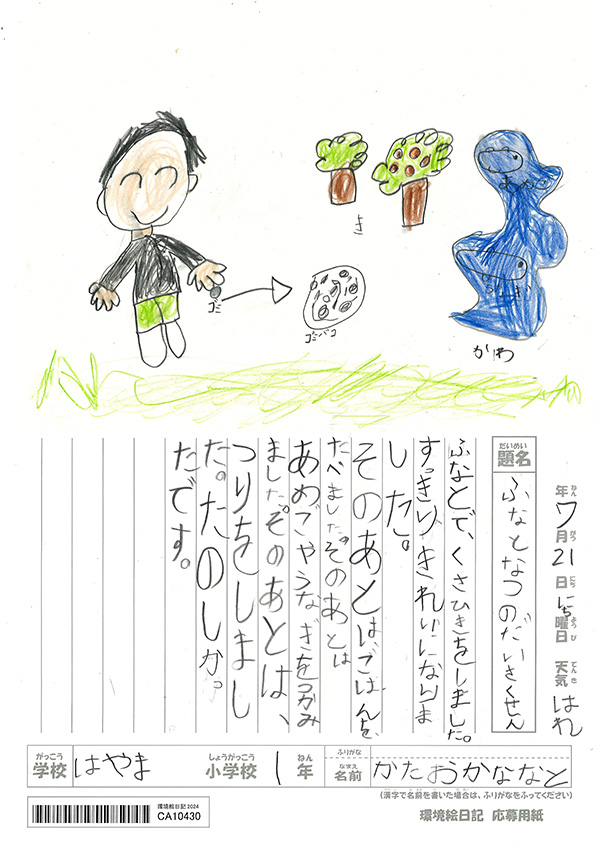 き
あめご
うなぎ
ゴミ
ゴミバコ
かわ
年 7月21日 にち曜日 天気 はれ
ねん がつ にち ようび てんき
だいめい
題名
ふなとなつのだいさくせん
ふなとで、くさひきをしました。
すっきり、きれいになりま
した。
そのあとは、ごはんを、
たべました。そのあとは
あめごやうなぎをつかみ
ました。そのあとは、
つりをしまし
た。たのしか。
たです。
がっこう しょうがっこう ねん なまえ ふりがな
学校 はやま 小学校 1年 名前 かたおかななと
(漢字で名前を書いた場合は、ふりがなをふってください)
環境絵日記2024
CA10430
環境絵日記 応募用紙